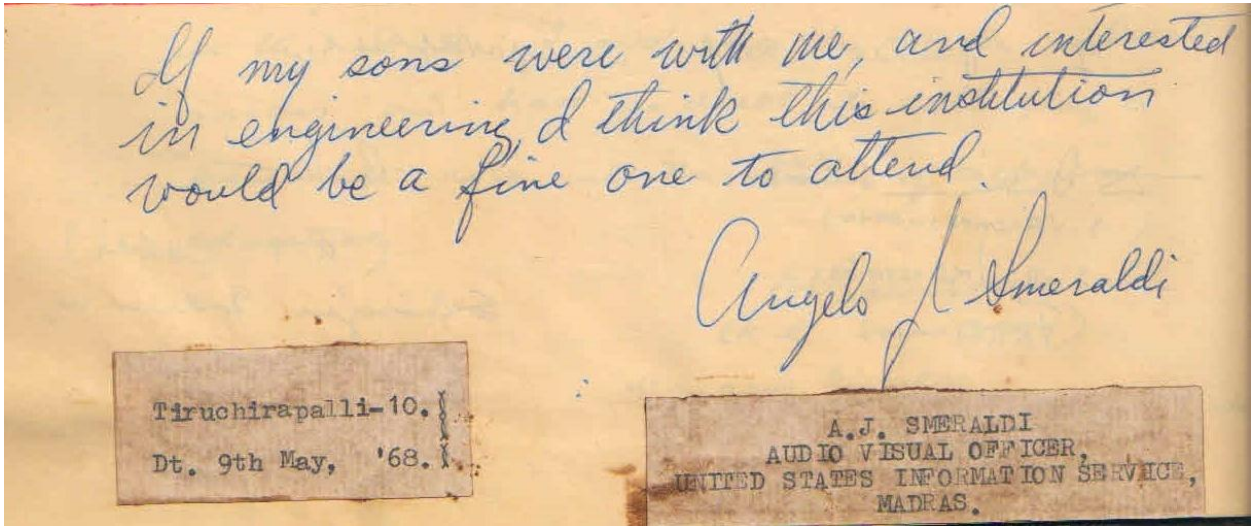 If my sons were with me, and interested
in engineering, I think this institution
would be a fine one to attend.
Angelo J Smeraldi
Tiruchirapalli-10.
Dt. 9th May, '68.
A.J. SMERALDI
AUDIO VISUAL OFFICER,
UNITED STATES INFORMATION SERVICE,
MADRAS.